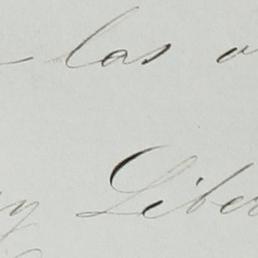 las
y Liber